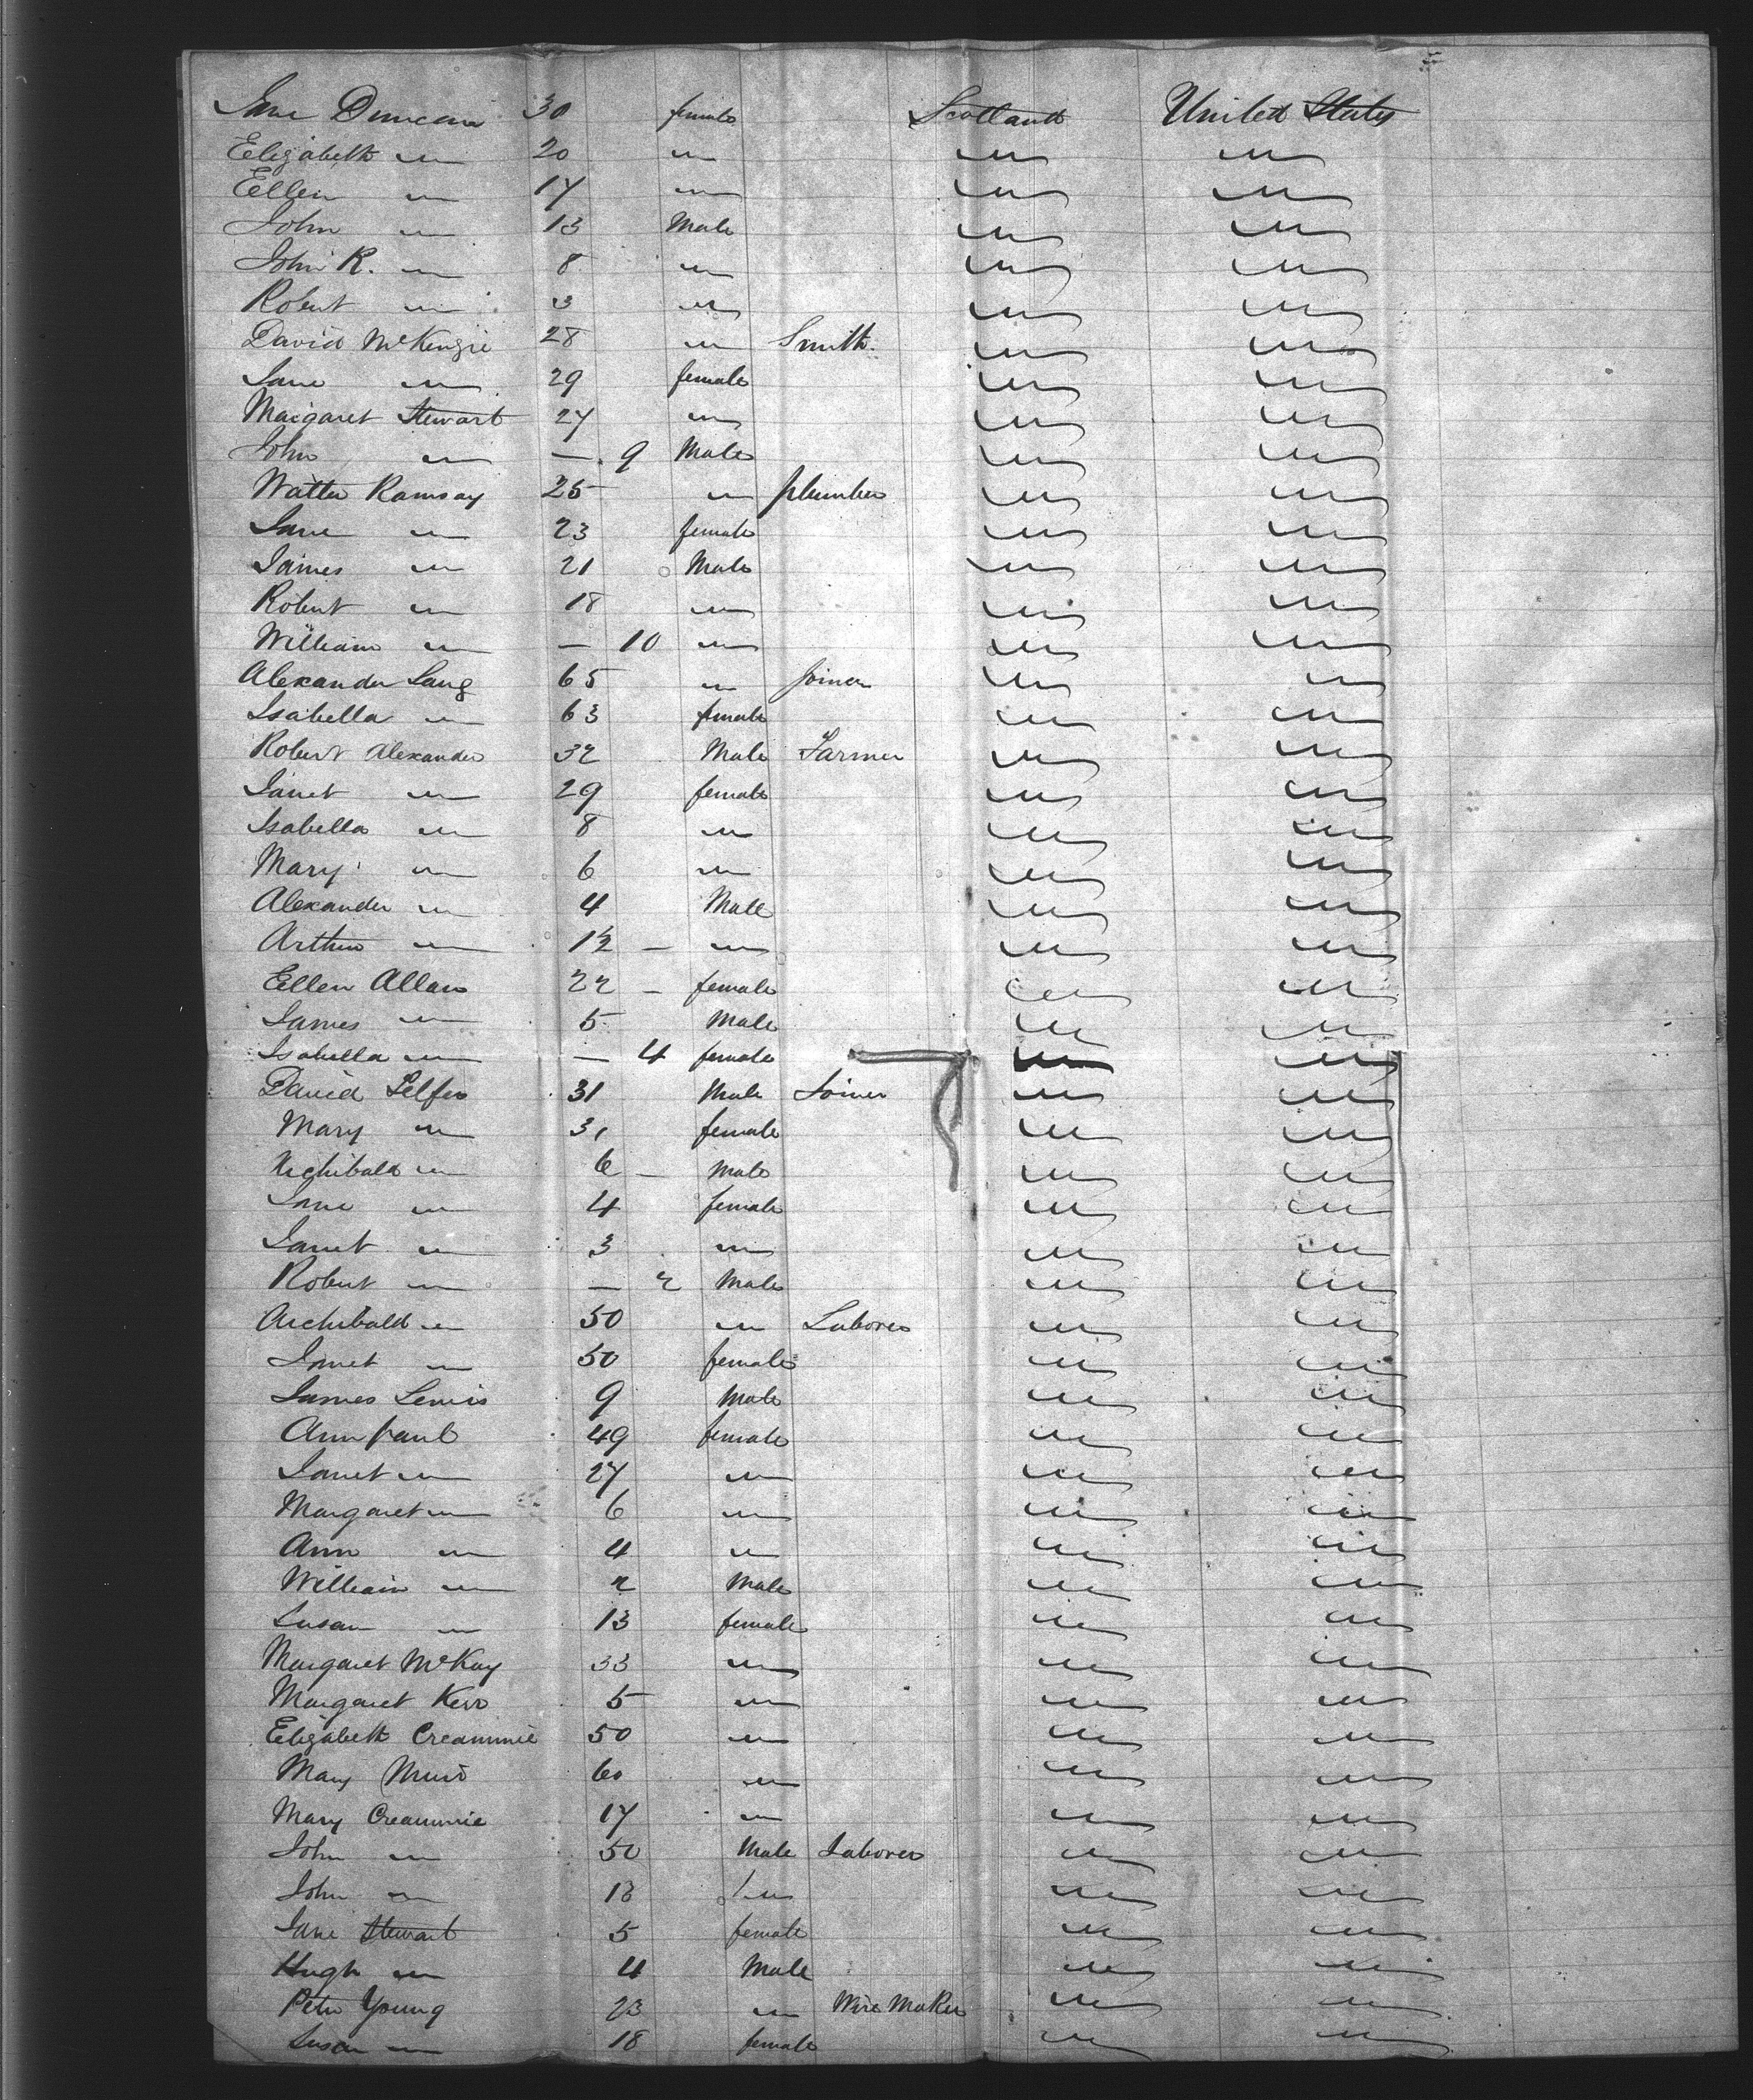 Jane Duncan 30 female Scotland United States
Elizabeth " 20 " " "
Eellen " 17 " " "
John " 13 Male " "
John R. " 8 " " "
Robert " 3 " " "
David McKenzie 28 " Smith " "
Jane " 29 female " "
Margaret Stewart 27 " " "
John " — 9 Male " "
Walter Ramsay 25 " plumber " "
Jane " 23 female " "
James " 21 Male " "
Robert " 18 " " "
William " — 10 " " "
Alexander Lang 65 " Joiner " "
Isabella " 63 female " "
Robert Alexander 32 Male Farmer " "
Janet " 29 female " "
Isabella " 8 " " "
Mary " 6 " " "
Alexander " 4 Male " "
Arthur " 1½ — " " "
Eellen Allan 22 — female " "
James " 5 Male " "
Isabella " — 4 female " "
David 31 Male Joiner " "
Mary " 31 female " "
Archibald " 6 — Male " "
Jane " 4 female " "
Janet " 3 " " "
Robert " — 2 Male " "
Archibald " 50 " Laborer " "
Janet " 50 female " "
James Lewis 9 Male " "
Ann Paul 49 female " "
Janet " 27 " " "
Margaret " 6 " " "
Ann " 4 " " "
William " 2 Male " "
Susan " 13 female " "
Margaret McKay 33 " " "
Margaret Kerr 5 " " "
Elizabeth Creammie 50 " " "
Mary Muir 60 " " "
Mary Creammie 17 " " "
John " 50 Male Laborer " "
John " 18 " " "
Jane Stewart 5 female " "
Hugh " 4 Male " "
Peter Young 23 " Wire Maker " "
Susan " 18 female " "